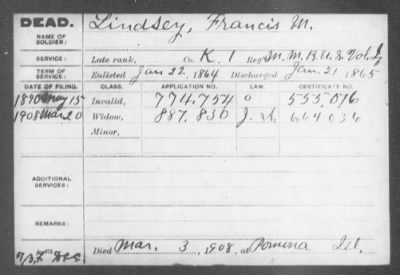 DEAD.
NAME OF SOLDIER:
Lindsey, Francis M.
SERVICE:
Late rank, Co. K. 1 Reg't M. M. B. U. S. Vol.
TERM OF SERVICE:
Enlisted Jan 22, 1864 Discharged Jan. 21, 1865
DATE OF FILING. CLASS. APPLICATION NO. LAW. CERTIFICATE NO.
1890 May 15 Invalid, 774.754 0 555,076
1908 Mar 20 Widow, 887.830 664036
Minor,
ADDITIONAL SERVICES:
REMARKS:
Died Mar. 3, 1908, at Pomona Ill.